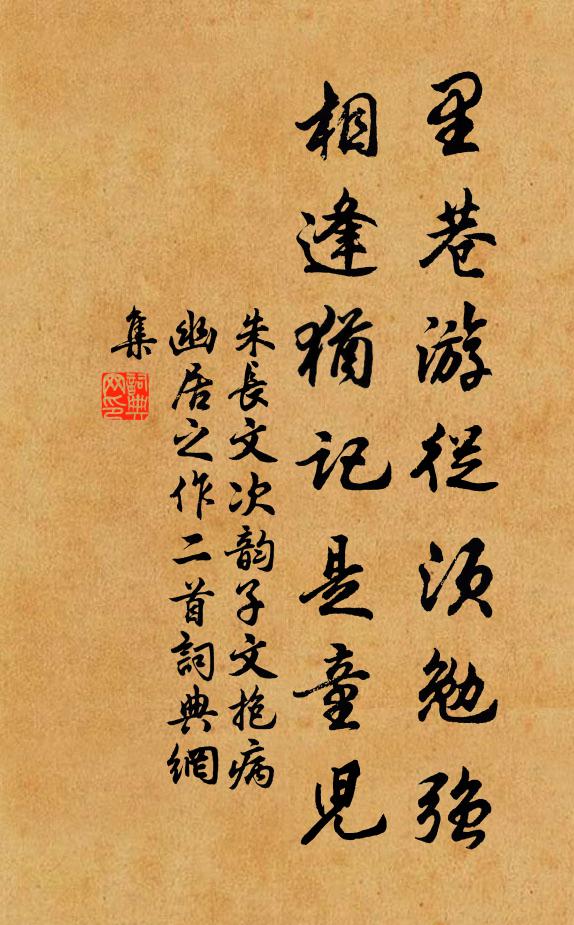 里巷游從須勉強
相逢猶記是童兒
朱長文次韵子文抱病
幽居之作二首詞典網
集
詞典
网印